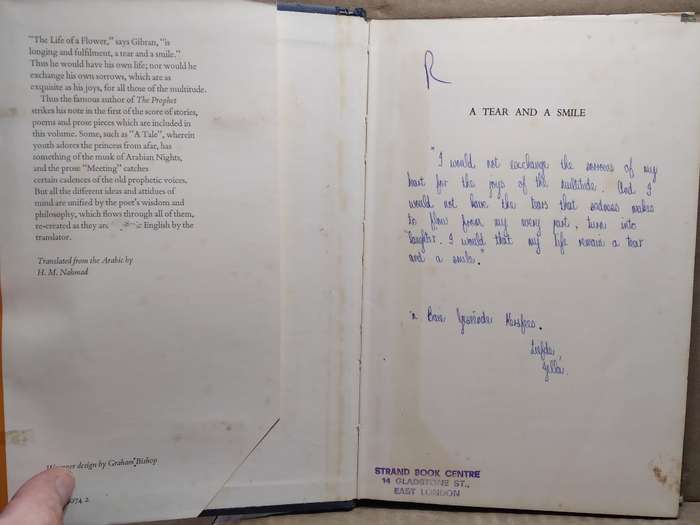 "The Life of a Flower," says Gibran, "is
longing and fulfilment, a tear and a smile."
Thus he would have his own life; nor would he
exchange his own sorrows, which are as
exquisite as his joys, for all those of the multitude.
Thus the famous author of The Prophet
strikes his note in the first of the score of stories,
poems and prose pieces which are included in
this volume. Some, such as "A Tale", wherein
youth adores the princess from afar, has
something of the musk of Arabian Nights,
and the prose "Meeting" catches
certain cadences of the old prophetic voices.
But all the different ideas and attidues of
mind are unified by the poet's wisdom and
philosophy, which flows through all of them,
re-created as they are English by the
translator.
Translated from the Arabic by
H. M. Nahmad
design by Graham Bishop
R
A TEAR AND A SMILE
"I would not exchange the sorrows of my
heart for the joys of the multitude. And I
would not have the tears that sadness makes
to flow from my every part, turn into
laughter. I would that my life remain a tear
and a smile."
'n Baie Geseënde Kersfees.
Liefde
STRAND BOOK CENTRE
14 GLADSTONE ST.,
EAST LONDON